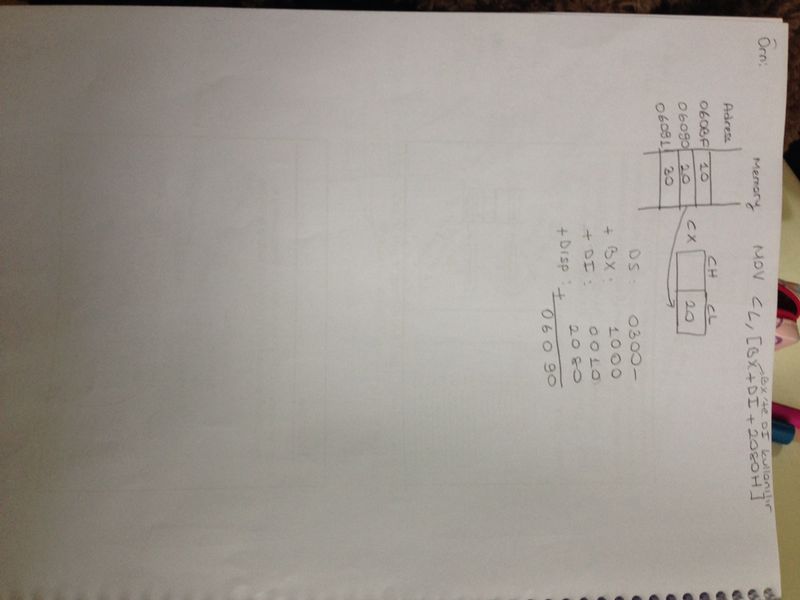 Örn:
Memory MOV CL, [BX+DI+2080H]
BX'te DI kullanılır
Adress
0608F 10
06090 20
06091 30
CH CL
CX 20
DS: 0300-
+ BX: 1000
+ DI: 0010
+ Disp: + 2080
06090